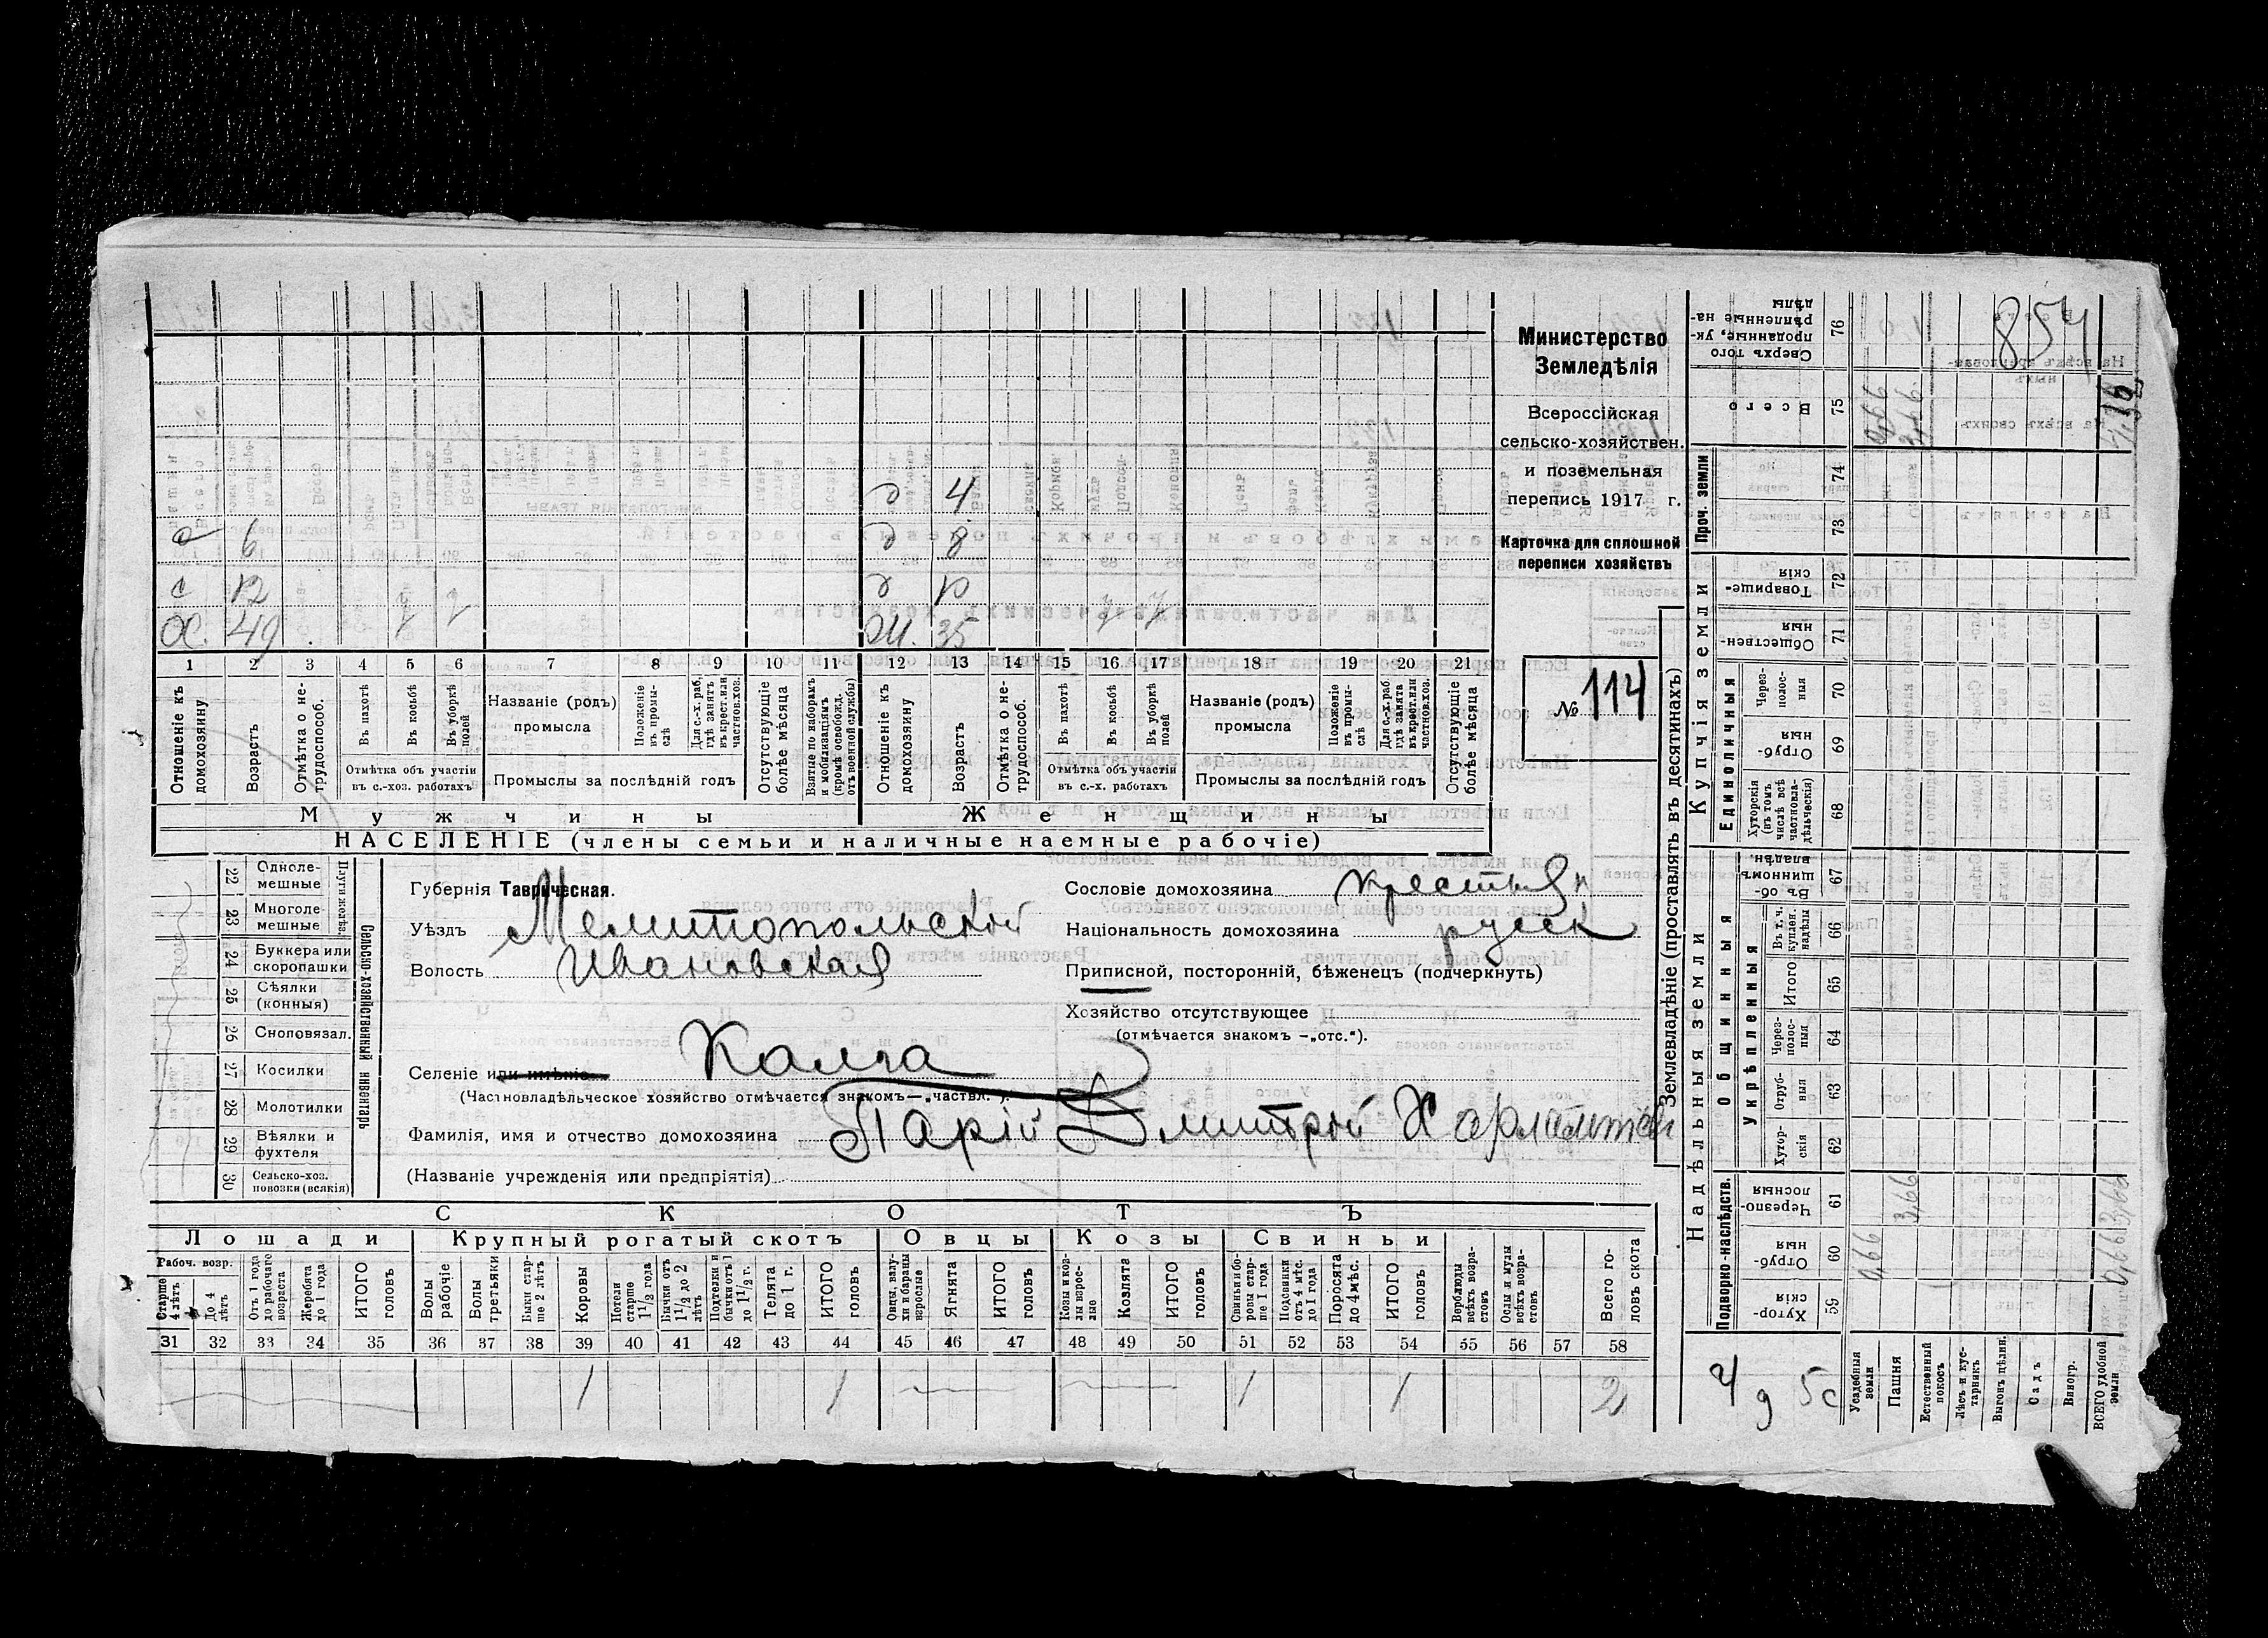 854
Министерство
Земледѣлія
Всероссійская
сельско-хозяйствен.
и поземельная
перепись 1917 г.
Карточка для сплошной
переписи хозяйствъ
№ 114
д 4
6 д 8
с 12
ОХ. 49 Ж. 35
1 2 3 4 5 6 7 8 9 10 11 12 13 14 15 16 17 18 19 20 21
Отношеніе къ домохозяину
Возрастъ
Отмѣтка о не-трудоспособ.
Въ пахотѣ
Въ косьбѣ
Въ уборкѣ полей
Отмѣтка объ участіи въ с.-хоз. работахъ
Названіе (родъ) промысла
Положеніе въ промы-слѣ
Для с.-х. раб. гдѣ занятъ въ крест. или частнов. хоз.
Промыслы за послѣдній годъ
Отсутствующіе болѣе мѣсяца
Взятые по наборамъ и мобилизаціямъ (кромѣ освобожд. отъ военной службы)
Отношеніе къ домохозяину
Возрастъ
Отмѣтка о не-трудоспособ.
Въ пахотѣ
Въ косьбѣ
Въ уборкѣ полей
Отмѣтка объ участіи въ с.-х. работахъ
Названіе (родъ) промысла
Положеніе въ промы-слѣ
Для с.-х. раб. гдѣ занята въ крест. или частнов. хоз.
Промыслы за послѣдній годъ
Отсутствующіе болѣе мѣсяца
Мужчины Женщины
НАСЕЛЕНІЕ (члены семьи и наличные наемные рабочіе)
Сельско-хозяйственный инвентарь
22 Одноле-мешные
23 Многоле-мешные
24 Буккера или скоропашки
25 Сѣялки (конныя)
26 Сноповязал.
27 Косилки
28 Молотилки
29 Вѣялки и фухтеля
30 Сельско-хоз. повозки (всякія)
Губернія Таврическая.
Уѣздъ Мелитопольскій
Волость Ивановская
Сословіе домохозяина крестьян
Національность домохозяина русск
Приписной, посторонній, бѣженецъ (подчеркнуть)
Хозяйство отсутствующее
(отмѣчается знакомъ —„отс.“).
Селеніе или имѣніе Калга
(Частновладѣльческое хозяйство отмѣчается знакомъ—„частвл.“).
Фамилія, имя и отчество домохозяина Парій Дмитрій
(Названіе учрежденія или предпріятія)
СКОТЪ
Лошади Крупный рогатый скотъ Овцы Козы Свиньи
Рабоч. возр.
Старше 4 лѣтъ
До 4 лѣтъ
Отъ 1 года до рабочаго возраста
Жеребята до 1 года
ИТОГО головъ
Волы рабочіе
Волы третьяки
Быки стар-ше 2 лѣтъ
Коровы
Нетели старше 1 1/2 года
Бычки отъ 1 1/2 до 2 лѣтъ
Подтелки и бычки отъ 1 до 1 1/2 г.
Телята до 1 г.
ИТОГО головъ
Овцы, валу-хи и бараны взрослые
Ягнята
ИТОГО головъ
Козы и коз-лы взрос-лые
Козлята
ИТОГО головъ
Свиньи и бо-ровы стар-ше 1 года
Подсвинки отъ 4 мѣс. до 1 года
Поросята до 4 мѣс.
ИТОГО головъ
Верблюды всѣхъ возра-стовъ
Ослы и мулы всѣхъ возра-стовъ
Всего го-ловъ скота
31 32 33 34 35 36 37 38 39 40 41 42 43 44 45 46 47 48 49 50 51 52 53 54 55 56 57 58
1 1 1 1 2
Землевладѣніе (проставлять въ десятинахъ)
Надѣльныя земли
Купчія земли
Проч. земли
Подворно-наслѣдств.
Общинныя
Укрѣпленныя
Единоличныя
59 Хутор-скія
60 Отруб-ныя
61 Черезпо-лосныя
62 Хутор-скія
63 Отруб-ныя
64 Через-полос-ныя
65 Итого
66 Въ т. ч. куплен. надѣлы
67 Въ об-щинномъ владѣн.
68 Хуторскія (въ томъ числѣ всѣ частновла-дѣльческія)
69 Отруб-ныя
70 Через-полос-ныя
71 Обществен-ныя
72 Товарище-скія
73
74
75 Всего
76 Сверхъ того проданные, ук-рѣпленные на-дѣлы
4 д 5 с
Усадебныя земли 0,66
Пашня 3,66
Естественный покосъ
Лѣсъ и кус-тарникъ
Выгонъ цѣлин.
Садъ
Виногр.
ВСЕГО удобной земли 0,66 3,66